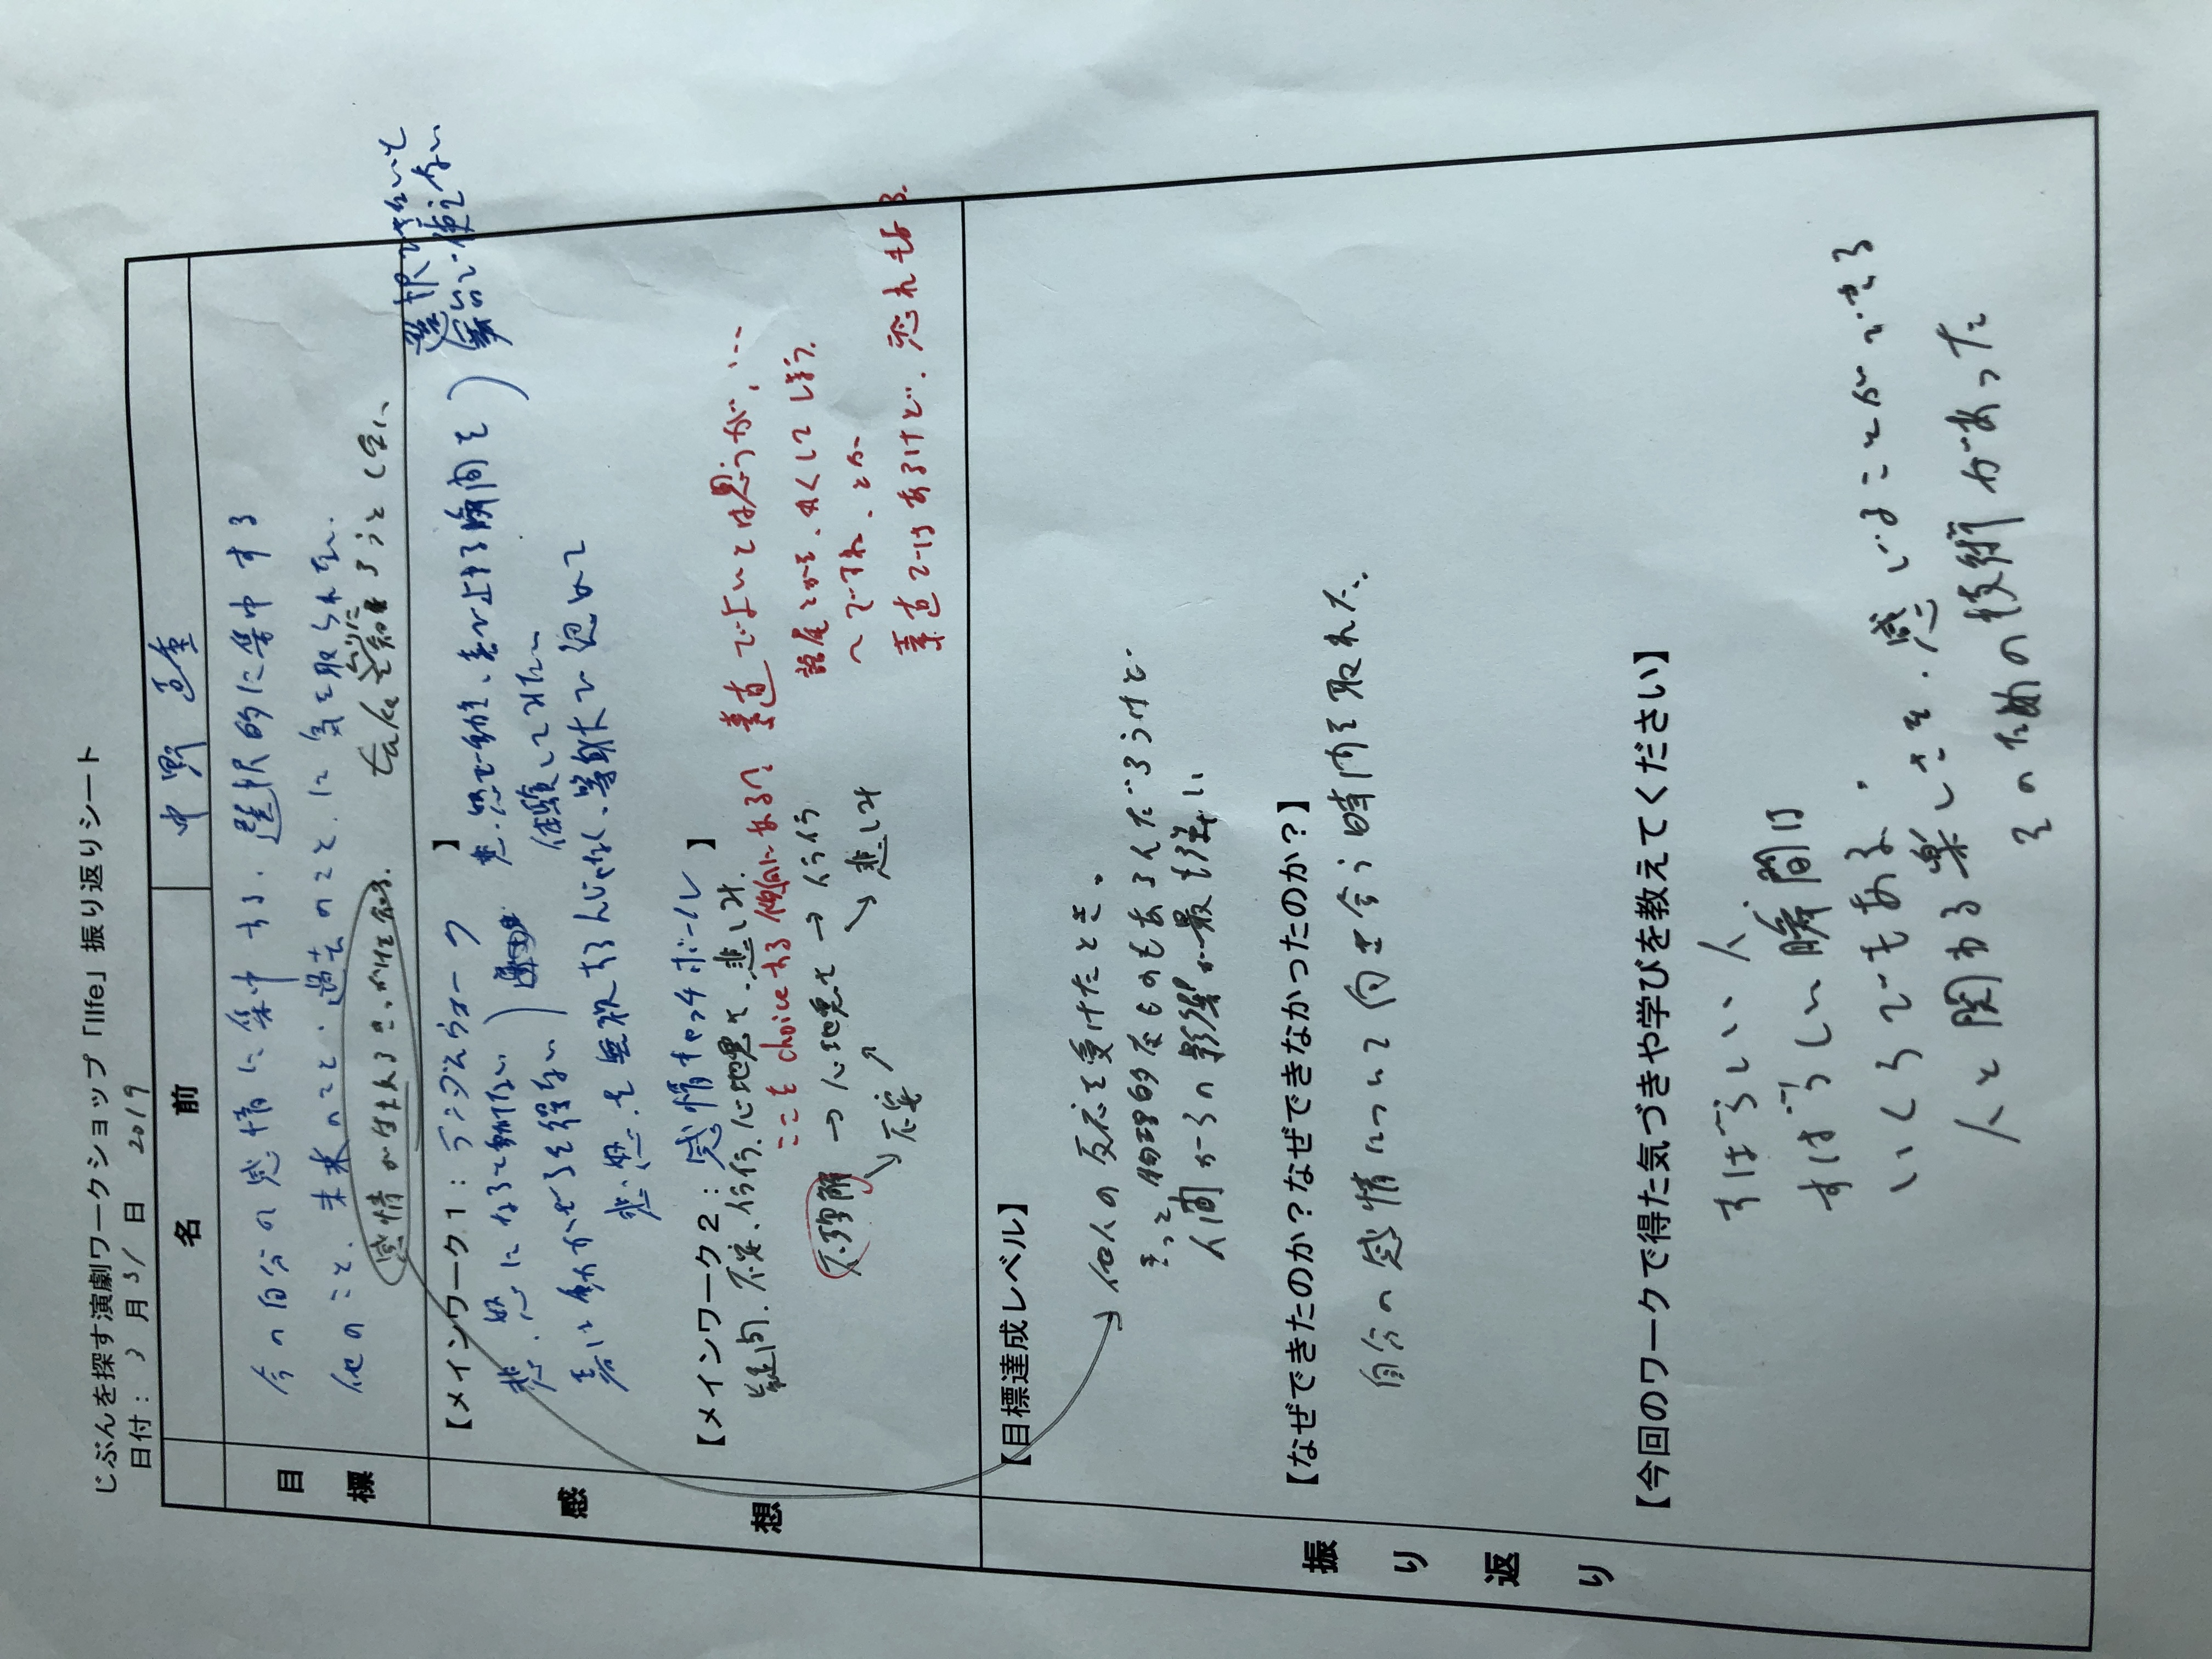 じぶんを探す演劇ワークショップ「life」振り返りシート
日付： 3 月 31 日 2019
名 前 中野 直重
目標
今の自分の感情に集中する、選択的に集中する
他のこと、未来のこと・過去のこと、に気を取られない。
感情が生まれるきっかけを知る。
takeを知ろうとしない
むりに
感想
【メインワーク１：ランダムウォーク】
悲、怒になると動けない
喜は動かせざるを得ない
悲、怒で動き、喜で止まる瞬間を
体験してみたい
選択できないと
舞台で使えない
悲・怒、を無視するんじゃなく、等身大で認めて
【メインワーク２：感情キャッチボール】
疑問、不安、イライラ、心地悪さ、悲しみ、
ここをchoiceする傾向にある？
素直でよいとは思うが、…
語尾とかを、丸くしてしまう。
〜ですね、とか
素直ではあるけど、恐れもある。
不理解 → 心地悪さ → イライラ
↘ 不安 ↗ ↘ 悲しみ
振り返り
【目標達成レベル】
他人の反応を受けたとき。
きっと物理的なものもあるんだろうけど
人間からの影響が最も強い
【なぜできたのか？なぜできなかったのか？】
自分の感情について向き合う時間を取れた。
【今回のワークで得た気づきや学びを教えてください】
すばらしい人、
すばらしい瞬間は
いくらでもある。
人と関わる楽しさを、感じることができる
そのための技術があった